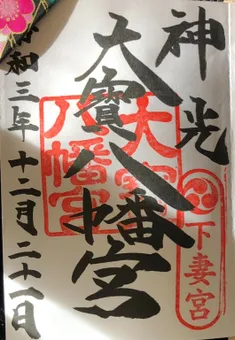 神光
下妻宮
大寶八幡宮
大寶
八幡宮
令和三年十二月二十一日